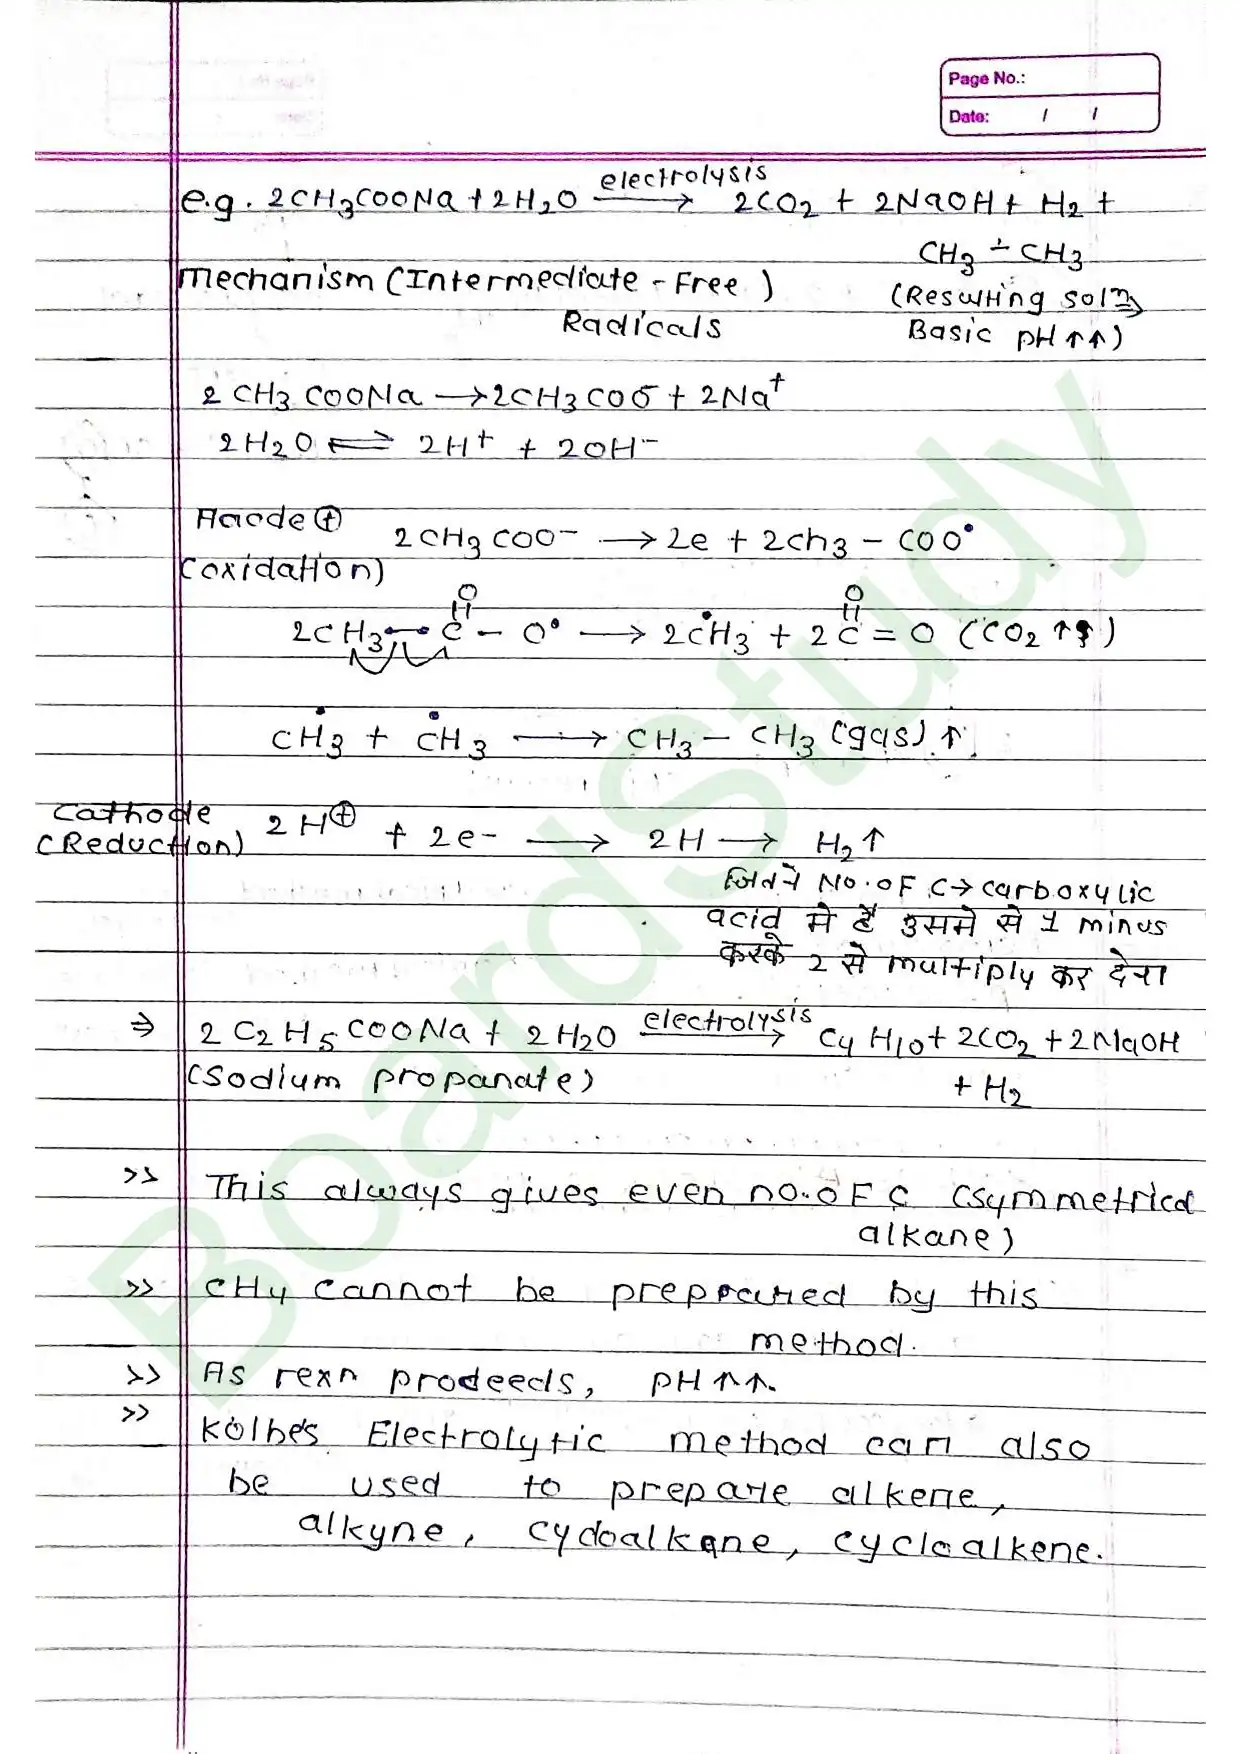 Page No.:
Date: / /
e.g. 2CH3COONa + 2H2O electrolysis → 2CO2 + 2NaOH + H2 +
CH3 – CH3
Mechanism (Intermediate - Free)
Radicals
(Resulting sol^n ⇒
Basic pH ↑↑)
2 CH3 COONa → 2CH3COO⁻ + 2Na⁺
2H2O ⇌ 2H⁺ + 2OH⁻
Anode ⊕ 2CH3COO⁻ → 2e + 2ch3 – COO•
(oxidation)
O O
|| ||
2CH3 – C – O• → 2ĊH3 + 2C = O (CO2 ↑)
ĊH3 + ĊH3 → CH3 – CH3 (gas) ↑
Cathode
(Reduction) 2H⊕ + 2e⁻ → 2H → H2 ↑
जितने No. of C → carboxylic
acid मे हैं उसमे से 1 minus
करके 2 से multiply कर देना
⇒ 2 C2H5COONa + 2H2O electrolysis → C4H10 + 2CO2 + 2NaOH
(Sodium propanate) + H2
>> This always gives even no. of C (symmetrical
alkane)
>> CH4 cannot be prepared by this
method.
>> As rexn prodeeds, pH ↑↑.
>> Kolbe's Electrolytic method can also
be used to prepare alkene,
alkyne, cycloalkane, cycloalkene.
BoardStudy